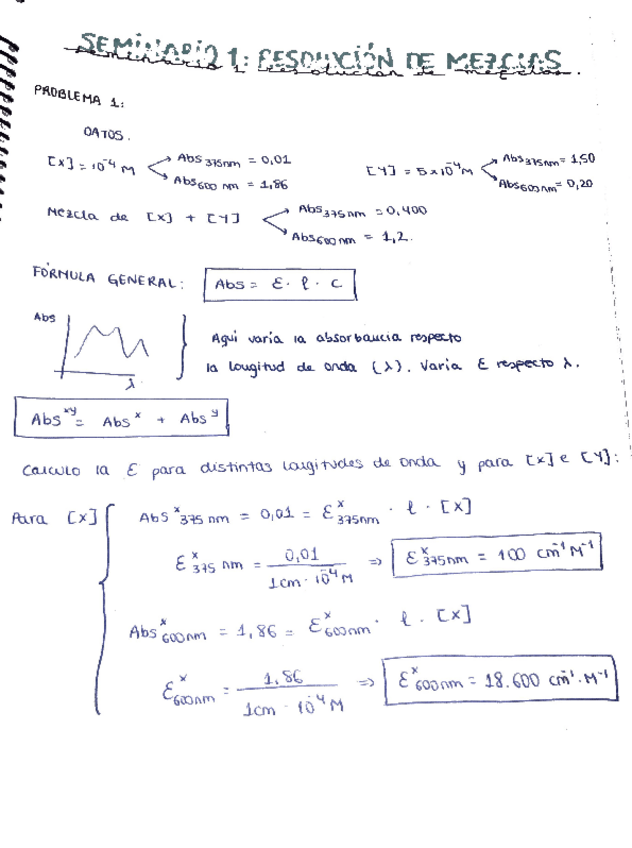 SEMINARIO 1: RESOLUCIÓN DE MEZCLAS
seminario 1: resolución de mezclas.
PROBLEMA 1:
DATOS.
[X] = 10⁻⁴ M → Abs 375nm = 0,01
→ Abs 600 nm = 1,86
[Y] = 5x10⁻⁴M → Abs 375nm = 1,50
→ Abs 600nm = 0,20
Mezcla de [X] + [Y] → Abs 375nm = 0,400
→ Abs 600nm = 1,2.
FÓRMULA GENERAL: Abs = ε · l · c
Abs
λ
Aquí varía la absorbancia respecto
la longitud de onda (λ). Varia ε respecto λ.
Abs^xy = Abs^x + Abs^y
Calculo la ε para distintas longitudes de onda y para [X] e [Y]:
Para [X]
Abs^x 375nm = 0,01 = ε^x 375nm · l · [X]
ε^x 375 nm = 0,01 / 1cm · 10⁻⁴M ⇒ ε^x 375nm = 100 cm⁻¹M⁻¹
Abs^x 600nm = 1,86 = ε^x 600nm · l · [X]
ε^x 600nm = 1,86 / 1cm · 10⁻⁴M ⇒ ε^x 600nm = 18.600 cm⁻¹·M⁻¹